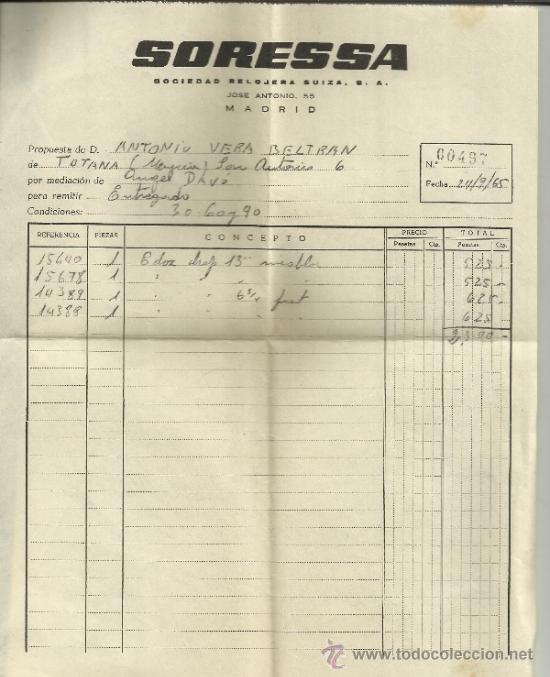 SORESSA
SOCIEDAD RELOJERA SUIZA, S. A.
JOSE ANTONIO, 55
MADRID
Propuesta de D. ANTONIO VERA BELTRAN
de TOTANA (Murcia) San Antonio 6
por mediación de Angel
para remitir Entregado
Condiciones: 30-60 y 90
N.º 00497
Fecha 24/9/65
REFERENCIA PIEZAS CONCEPTO PRECIO TOTAL
Pesetas Cts. Pesetas Cts.
15640 1 Edox chap 13''' 525 -
15678 1 " " " " 525 -
14389 1 " " 6 3/4 625 -
14388 1 " " " " 625 -
todocoleccion
www.todocoleccion.net